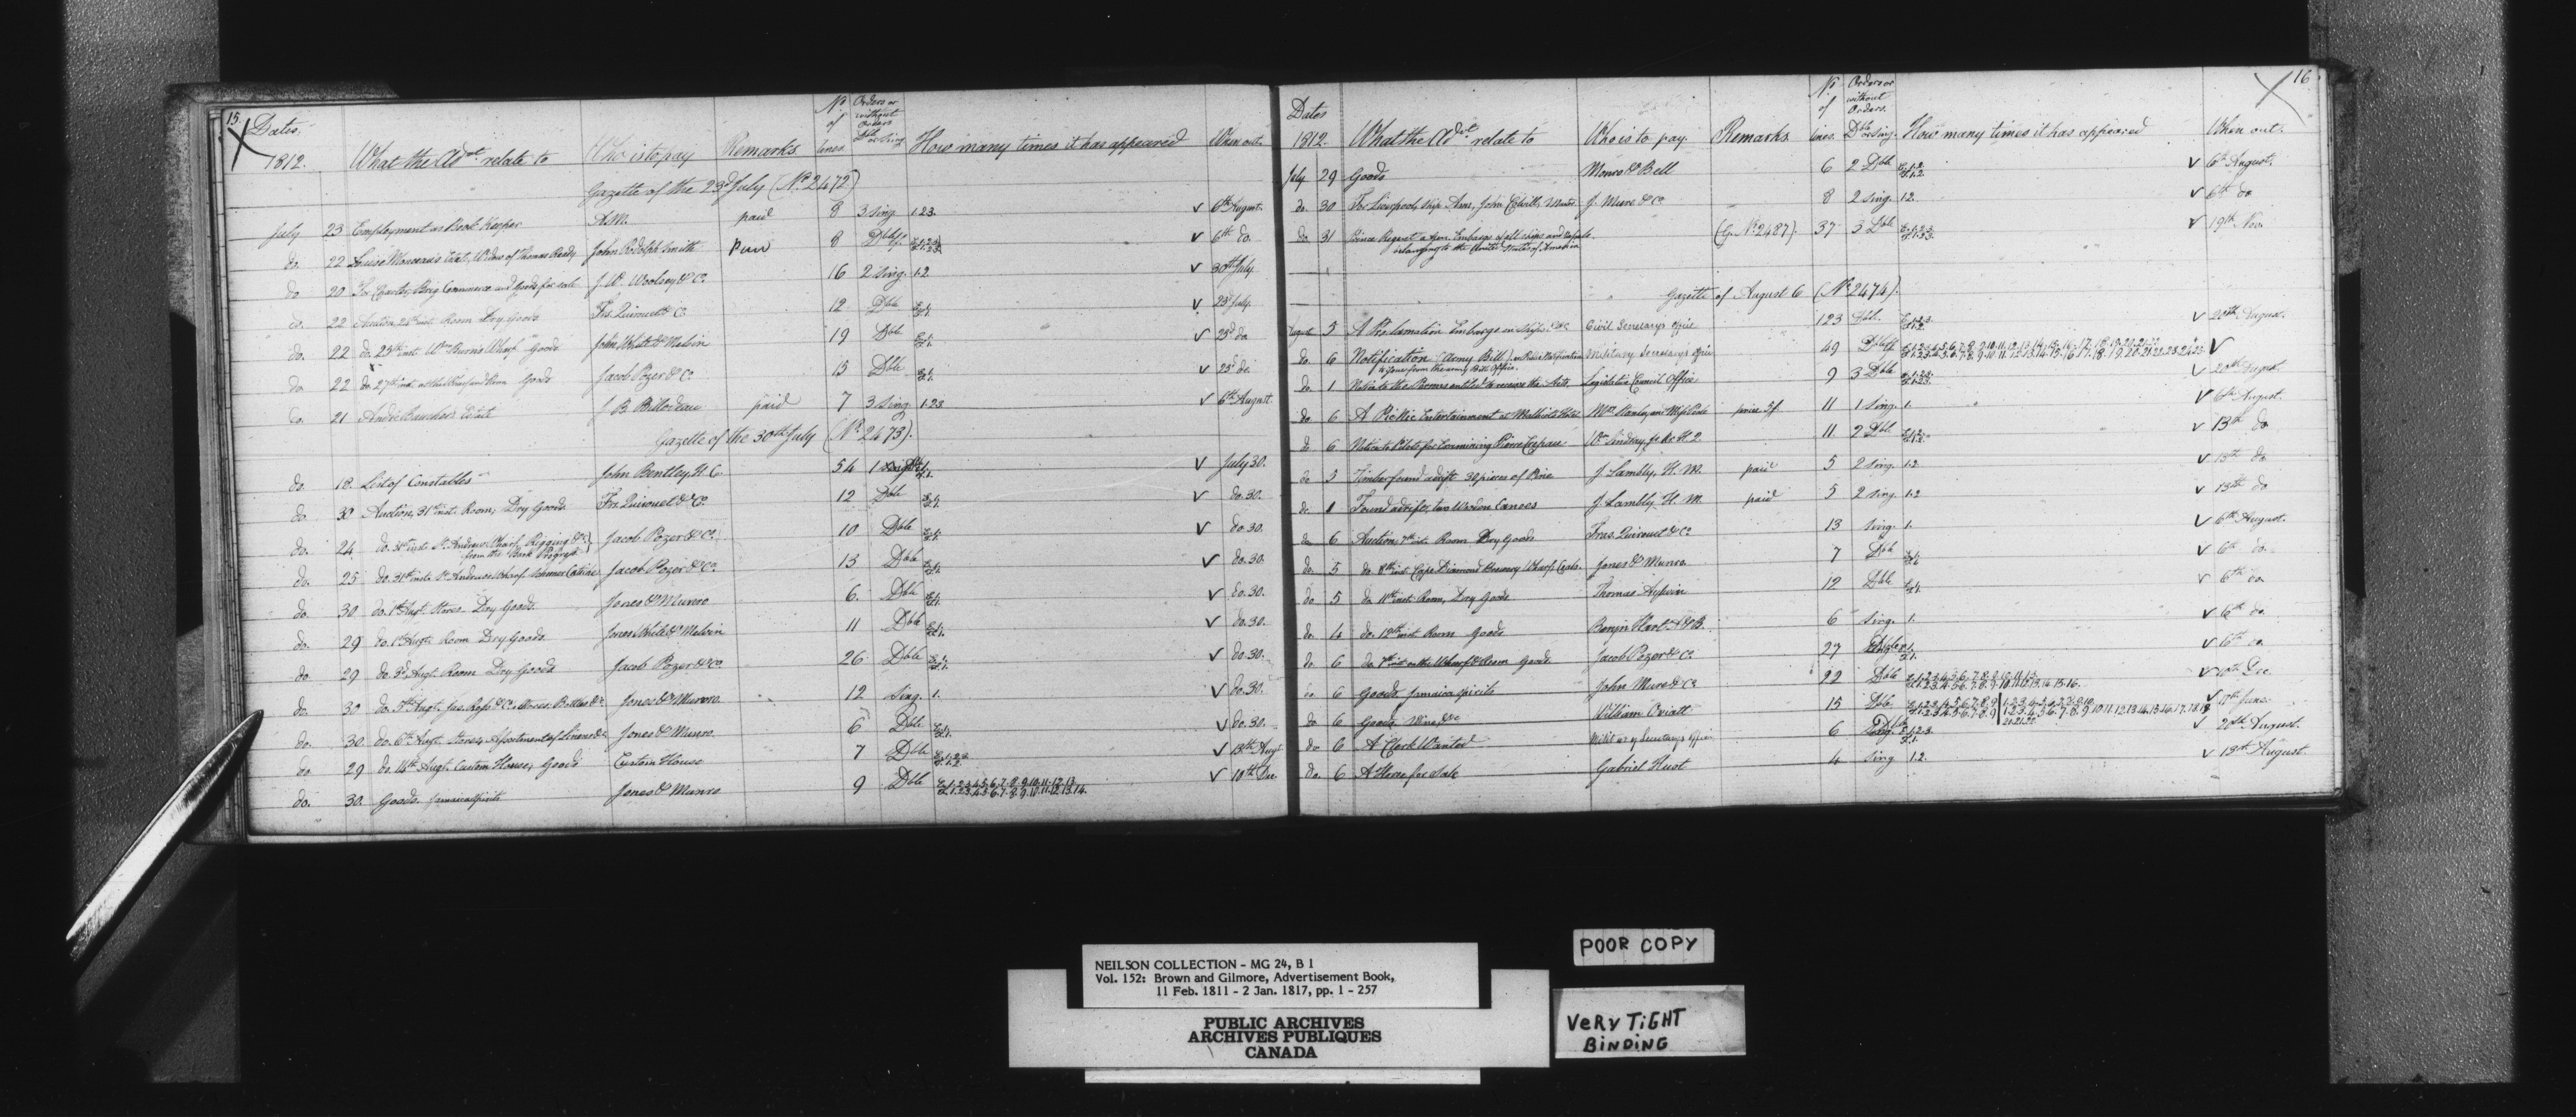 15.
Dates.
1812. What the Adv.t relate to Who is to pay Remarks No of lines Orders or without Orders Dble or Sing. How many times it has appeared When out.
Gazette of the 23d July (No. 2472)
July 23 Employment as Book Keeper A.M. paid 8 3 sing. 1.2.3. v 6th August.
do. 22 Louise Estate, Widow of Thomas Ready John Rodolph Smith paid 8 Dble v 6th do.
do 20 For Charter, Brig Commerce and Goods for sale J. W. Woolsey & Co. 16 2 sing. 1.2. v 30th July
do. 22 Auction 24th inst. Room Dry Goods Frs. Quirouet & Co. 12 Dble v 23d July.
do. 22 do. 23th inst. Wm Burns Wharf Goods John White & Melvin 19 Dble v 23d do
do. 22 do. 27th inst. Goods Jacob Pozer & Co. 15 Dble v 23d do.
do. 21 Estate J. B. Billodeau paid 7 3 sing. 1.2.3 v 6th August.
Gazette of the 30th July (No. 2473).
do. 18. List of Constables John Bentley, H. C. 54 1 v July 30.
do. 30 Auction, 31st inst. Room, Dry Goods Frs. Quirouet & Co. 12 Dble v do. 30.
do. 24 do. 31st inst. St. Andrews Wharf, Rigging &c. from the Bark Jacob Pozer & Co. 10 Dble v do. 30.
do. 25 do. 31st inst. St. Andrews Wharf. Schooner Jacob Pozer & Co. 13 Dble v do. 30.
do. 30 do. 1st Augt. Stores Dry Goods. Jones & Munro 6. Dble v do. 30.
do. 29 do. 1st Augt. Room Dry Goods. Jones White & Melvin 11 Dble v do. 30.
do. 29 do. 3d Augt. Room Dry Goods Jacob Pozer & Co 26 Dble v do. 30.
do. 30 do. 5th Augt. Jas. Ross & Co. Stores, Bottles &c. Jones & Munro. 12 sing. 1. v do. 30.
do. 30. do. 6th Augt. Stores, Assortment of Jones & Munro. 6 Dble. v do. 30.
do 29 do. 14th Augt. Custom House, Goods Custom House 7 Dble v 13th Augt
do. 30. Goods. Jamaica Spirits Jones & Munro 9 Dble 1.2.3.4.5.6.7.8.9.10.11.12.13.14. v 10th Dec.
16
Dates
1812. What the Adv.t relate to Who is to pay. Remarks No of lines. Orders or without Orders. Dble or Sing. How many times it has appeared When out.
July 29 Goods Munro & Bell 6 2 Dble v 6th August.
do. 30 For Liverpool, ship Ann, John Master. J. Mure & Co 8 2 sing. 1.2. v 6th do
do 31 Prince Regent Embargo of all ships and Vessels belonging to the United States of America (G. No. 2487). 37 3 Dble v 19th Nov.
Gazette of August 6 (No. 2474).
August 5 A Proclamation Embargo on Ships &c. Civil Secretary's Office 123 Dbl. v 20th August.
do 6 Notification (Army Bills) Military Secretary's Office 49 Dble v
do. 1 Notice to the Persons entitled to receive the Acts Legislative Council Office 9 3 Dble v 20th August.
do 6 A PicNic Entertainment at Hotel Mrs. Stanley and Miss 11 1 sing. 1. v 6th August.
do 6 Notice to Pilots for Examining Pierre Wm Lindsay, 11. 2 Dbl. v 13th do
do 3 Timber found adrift 30 pieces of Pine J. Lambly, H. M. paid 5 2 sing. 1.2 v 13th do.
do. 1 Found adrift, two Wooden Canoes J. Lambly, H. M. paid 5 2 sing. 1.2 v 13th do
do 6 Auction, 7th inst. Room Dry Goods Fras. Quirouet & Co. 13 sing. 1. v 6th August.
do. 5 do. 8th inst. Cape Diamond Brewery Wharf, Coals. Jones & Munro. 7 Dble v 6th do.
do 5 do. 11th inst. Room, Dry Goods Thomas Aylwin 12 Dble v 6th do
do. 4 do. 12th inst. Room Goods Benjn Hart 6 sing. 1. v 6th do.
do. 6 do. 7th inst on the Wharf & Room Goods Jacob Pozer & Co. 27 v 6th do.
do 6 Goods, Jamaica Spirits John Mure & Co. 22 Dble v 10th Dec.
do. 6 Goods, Wine, &c William Oviatt 15 Dble. v 17th June.
do 6 A Clerk Wanted Military Secretary's Office 6 v 20th August.
do. 6 A Horse for Sale Gabriel Huot 4 sing. 1.2. v 13th August.
POOR COPY
NEILSON COLLECTION - MG 24, B 1
Vol. 152: Brown and Gilmore, Advertisement Book,
11 Feb. 1811 - 2 Jan. 1817, pp. 1 - 257
PUBLIC ARCHIVES
ARCHIVES PUBLIQUES
CANADA
VERY TIGHT
BINDING